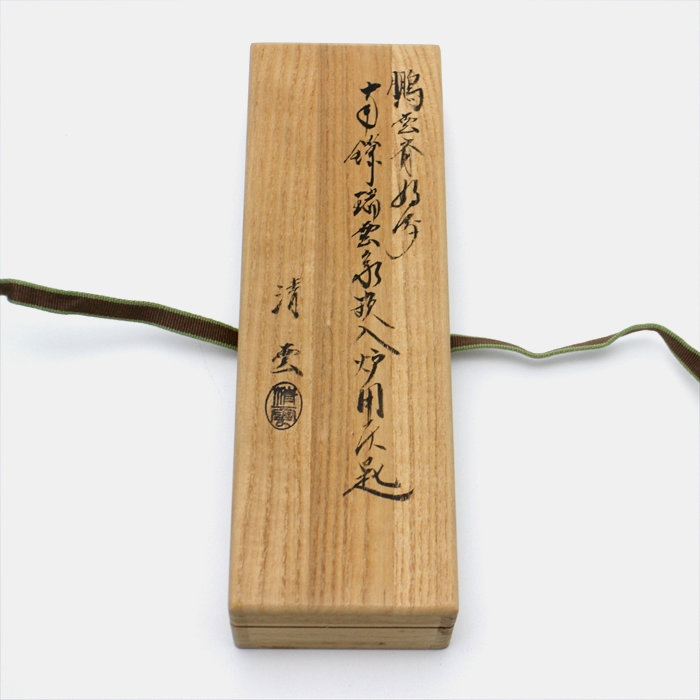 鵬雲斎好写
南鐐瑞雲象嵌入炉用灰匙
清雲